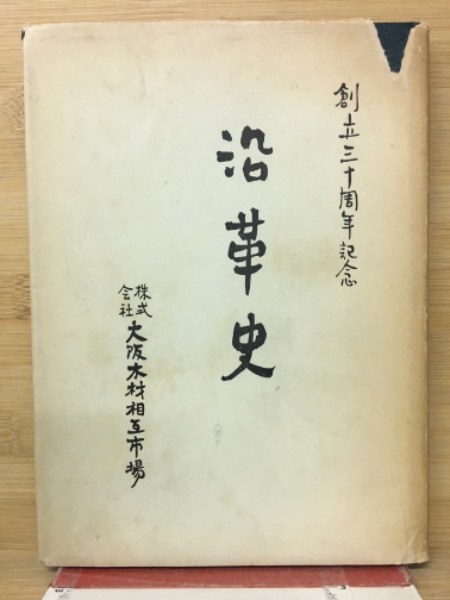 創立三十周年記念
沿革史
株式会社大阪木材相互市場